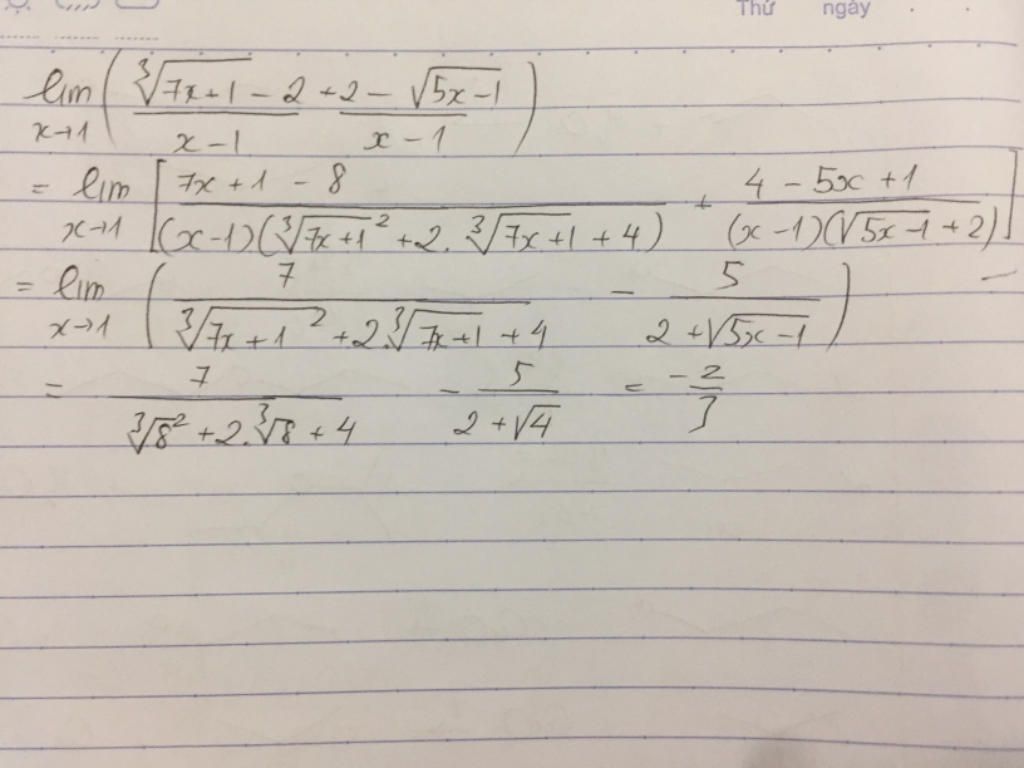 Thứ ngày . .
lim x→1 ( (∛(7x+1) - 2)/(x-1) + (2 - √(5x-1))/(x-1) )
= lim x→1 [ (7x+1-8)/((x-1)(∛(7x+1)² + 2.∛(7x+1) + 4)) + (4-5x+1)/((x-1)(√(5x-1)+2)) ]
= lim x→1 ( 7/(∛(7x+1)² + 2.∛(7x+1) + 4) - 5/(2+√(5x-1)) ) -
= 7/(∛8² + 2.∛8 + 4) - 5/(2+√4) = -2/3